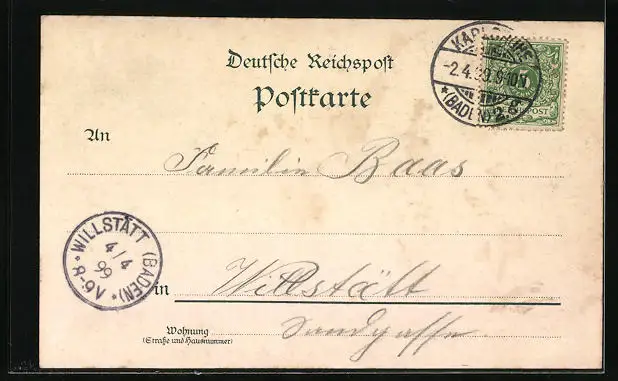 Deutsche Reichspost
Postkarte
KARLSRUHE
-2.4.99.9-10V
*(BADEN) 2.g.
An
Familie Baas
WILLSTÄTT (BADEN)
4/4
99
* 8-9V *
in Willstätt
Sandgasse
Wohnung
(Straße und Hausnummer)